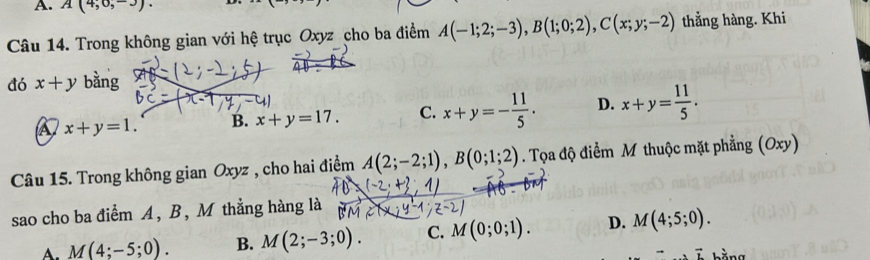 A. A(4;0;-5).
Câu 14. Trong không gian với hệ trục Oxyz cho ba điểm A(-1;2;-3), B(1;0;2), C(x;y;-2) thẳng hàng. Khi
đó x+y bằng AB=(2;-2;5) AB = BC
BC=(x-1;y;-4)
A. x+y=1. B. x+y=17. C. x+y=-11/5. D. x+y=11/5.
Câu 15. Trong không gian Oxyz, cho hai điểm A(2;-2;1), B(0;1;2). Tọa độ điểm M thuộc mặt phẳng (Oxy)
AB=(-2;+3;1) AB = BM
sao cho ba điểm A, B, M thẳng hàng là BM=(x;y-1;z-2)
A. M(4;-5;0). B. M(2;-3;0). C. M(0;0;1). D. M(4;5;0).
bằng